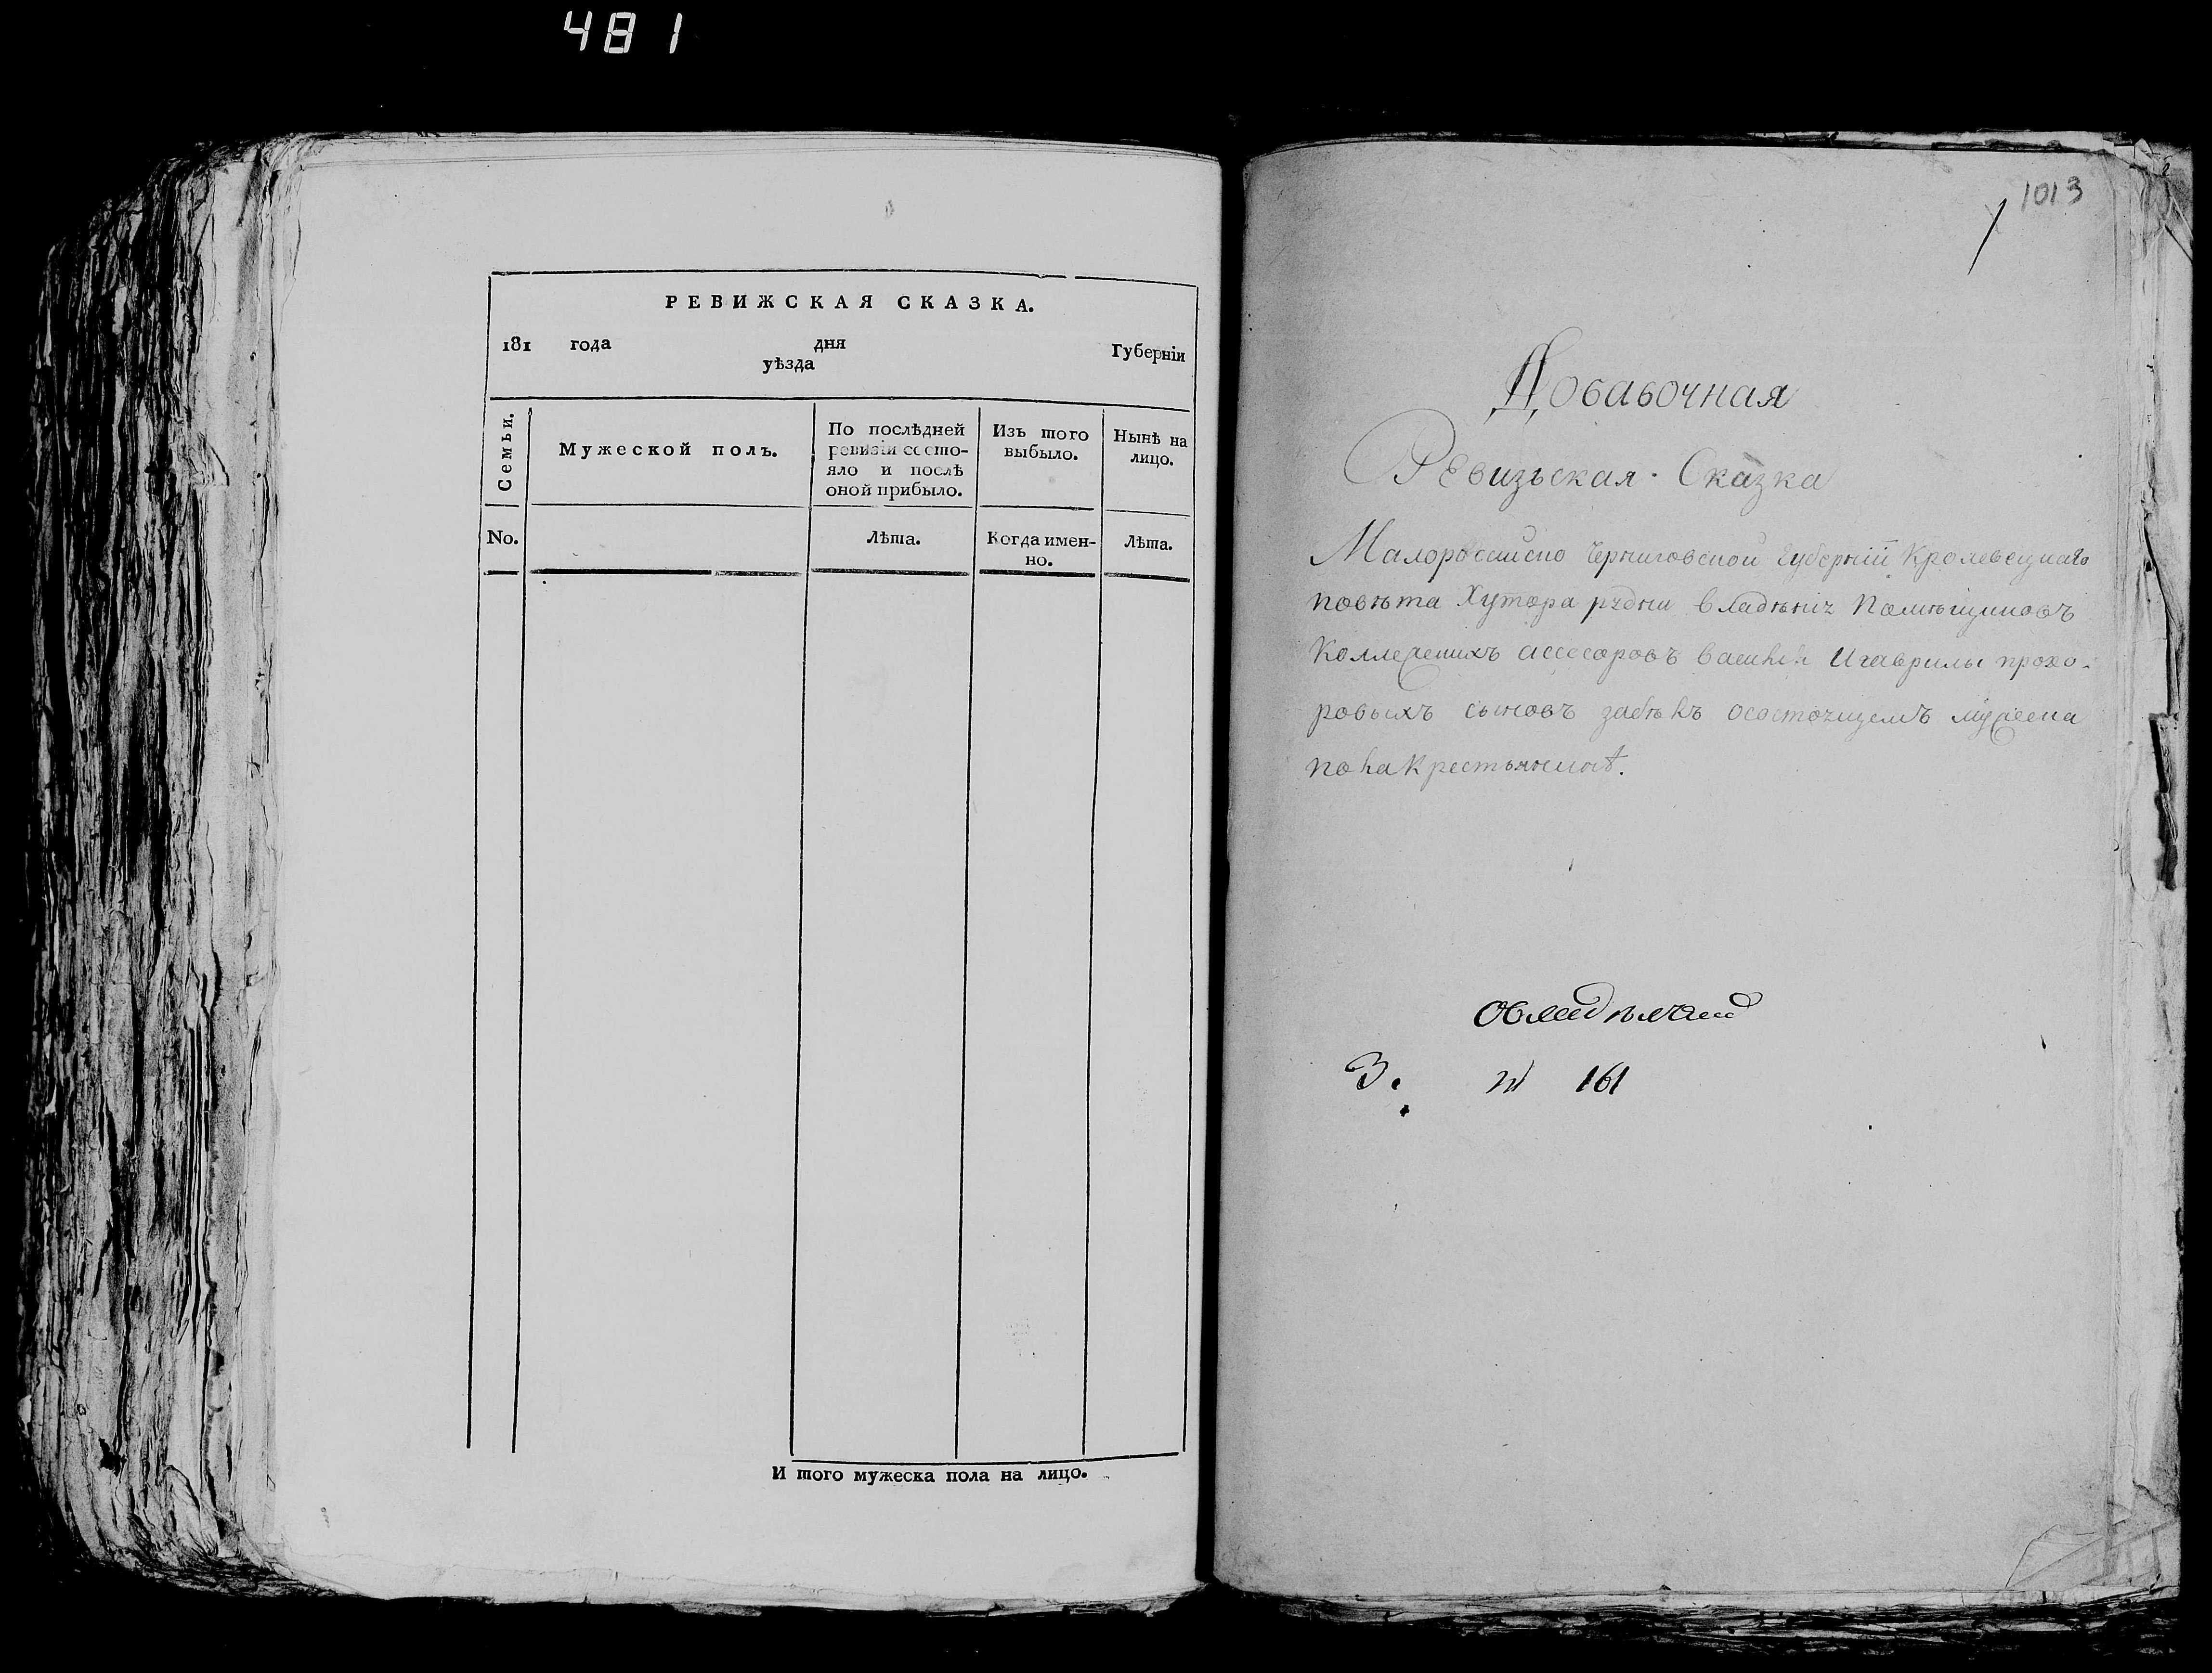 481
РЕВИЖСКАЯ СКАЗКА.
181 года дня Губерніи
уѣзда
Семьи.
Мужеской полъ.
По послѣдней
ревизіи состо-
яло и послѣ
оной прибыло.
Изъ того
выбыло.
Нынѣ на
лицо.
No.
Лѣта.
Когда имен-
но.
Лѣта.
И того мужеска пола на лицо.
1013
Добавочная
Ревизьская Сказка
Малороссийско Черниговской губерніи Кролевецкаго
повѣта Хутора владѣнія Помѣщиковъ
Коллежскихъ ассесоровъ Василия И гаврилы прохо-
ровыхъ сыновъ забѣлъ осостоящемъ мужеска
пола крестьянинѣ.
З. № 161